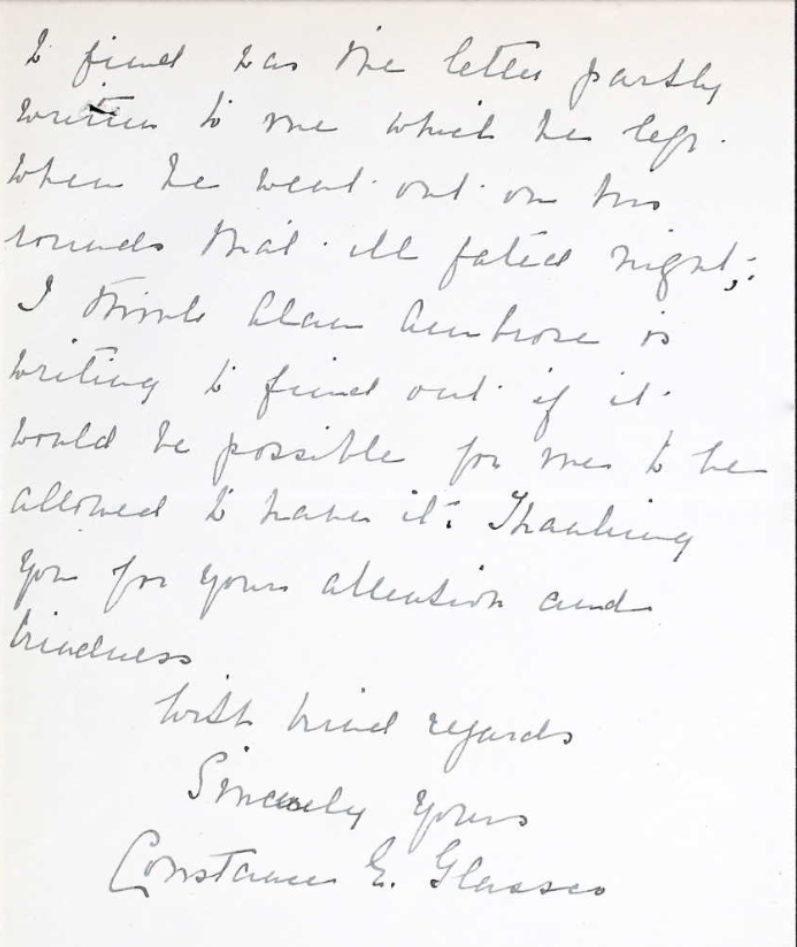 to find was the letter partly
written to me which he left
when he went out on his
rounds that ill fated night;
I think Clare Ambrose is
writing to find out if it
would be possible for me to be
allowed to have it. Thanking
you for your attention and
kindness
With kind regards
Sincerely yours
Constance E. Glassco